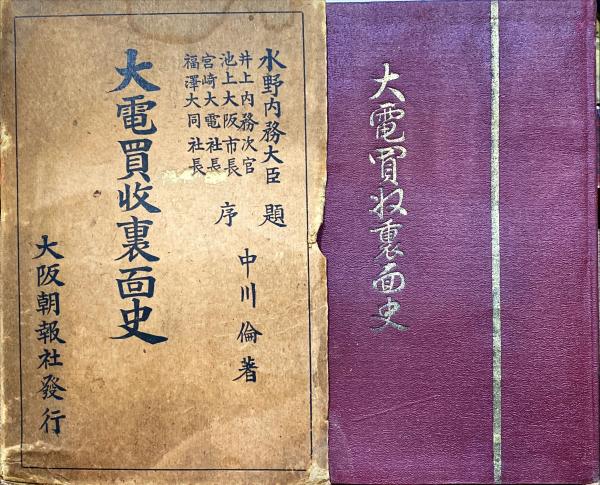 水野内務大臣 題
井上内務次官
池上大阪市長
宮崎大電社長
福澤大同社長
序
中川倫著
大電買收裏面史
大阪朝報社發行
大電買收裏面史